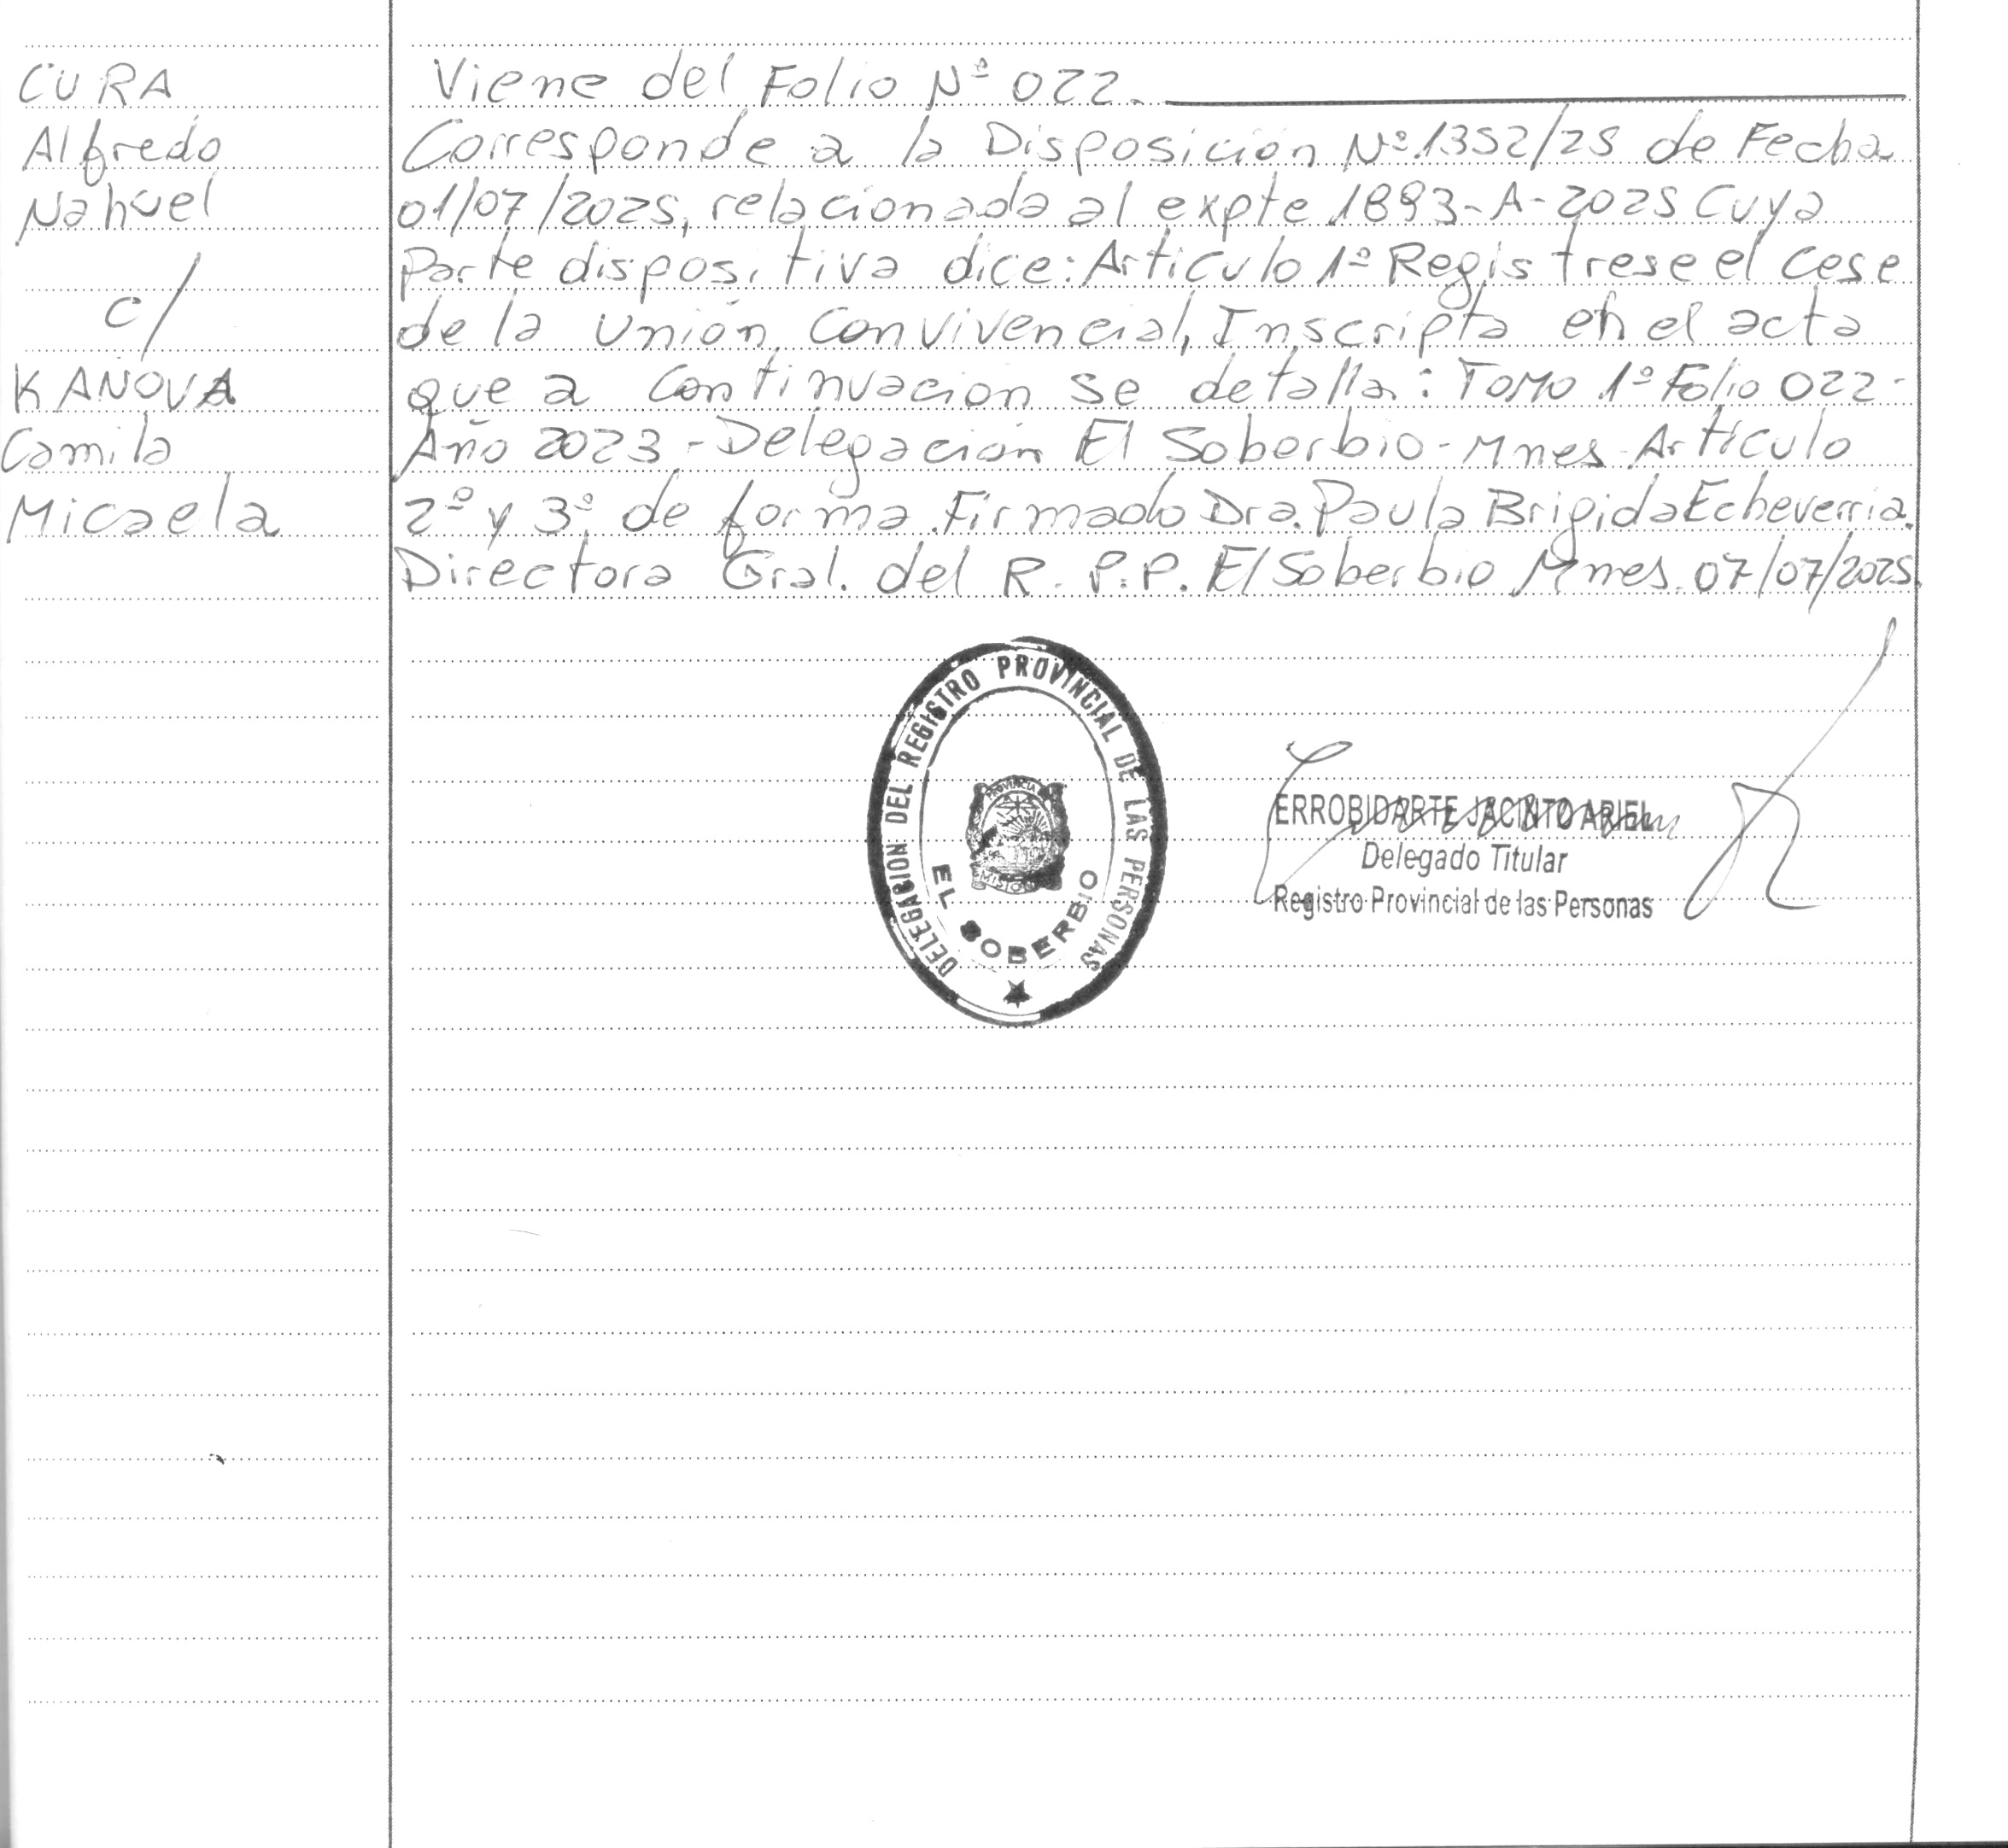 CURA
Alfredo
Nahuel
c/
KANOVA
Camila
Micaela
Viene del Folio Nº 022.
Corresponde a la Disposición Nº 1352/25 de Fecha
01/07/2025, relacionada al expte 1893-A-2025 Cuya
Parte dispositiva dice: Articulo 1º Registrese el cese
de la Unión Convivencial, Inscripta en el acta
que a Continuación se detalla: Tomo 1º Folio 022-
Año 2023-Delegación El Soberbio-Mnes-Artículo
2º y 3º de forma. Firmado Dra. Paula Brigida Echeverria.
Directora Gral. del R.P.P. El Soberbio Mnes. 07/07/2025.
DELEGACION DEL REGISTRO PROVINCIAL DE LAS PERSONAS
PROVINCIA
MISIONES
EL SOBERBIO
ERROBIDARTE JACINTO ARIEL
Delegado Titular
Registro Provincial de las Personas